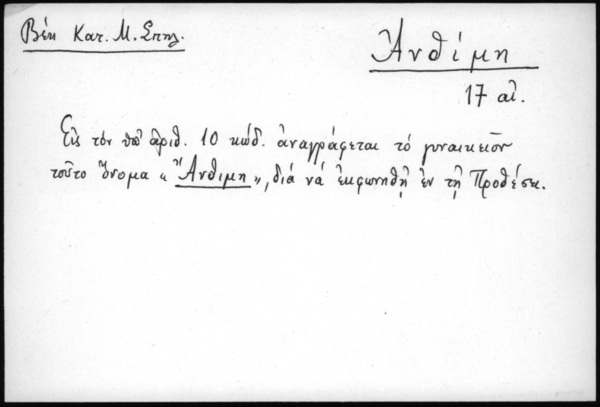 Βέη Κατ. Μ. Σπηλ.
Ἀνθίμη
17 αἰ.
Εἰς τὸν ὑπ' ἀριθ. 10 κώδ. ἀναγράφεται τὸ γυναικεῖον
τοῦτο ὄνομα «Ἄνθιμη», διὰ νὰ ἐκφωνηθῇ ἐν τῇ Προθέσει.